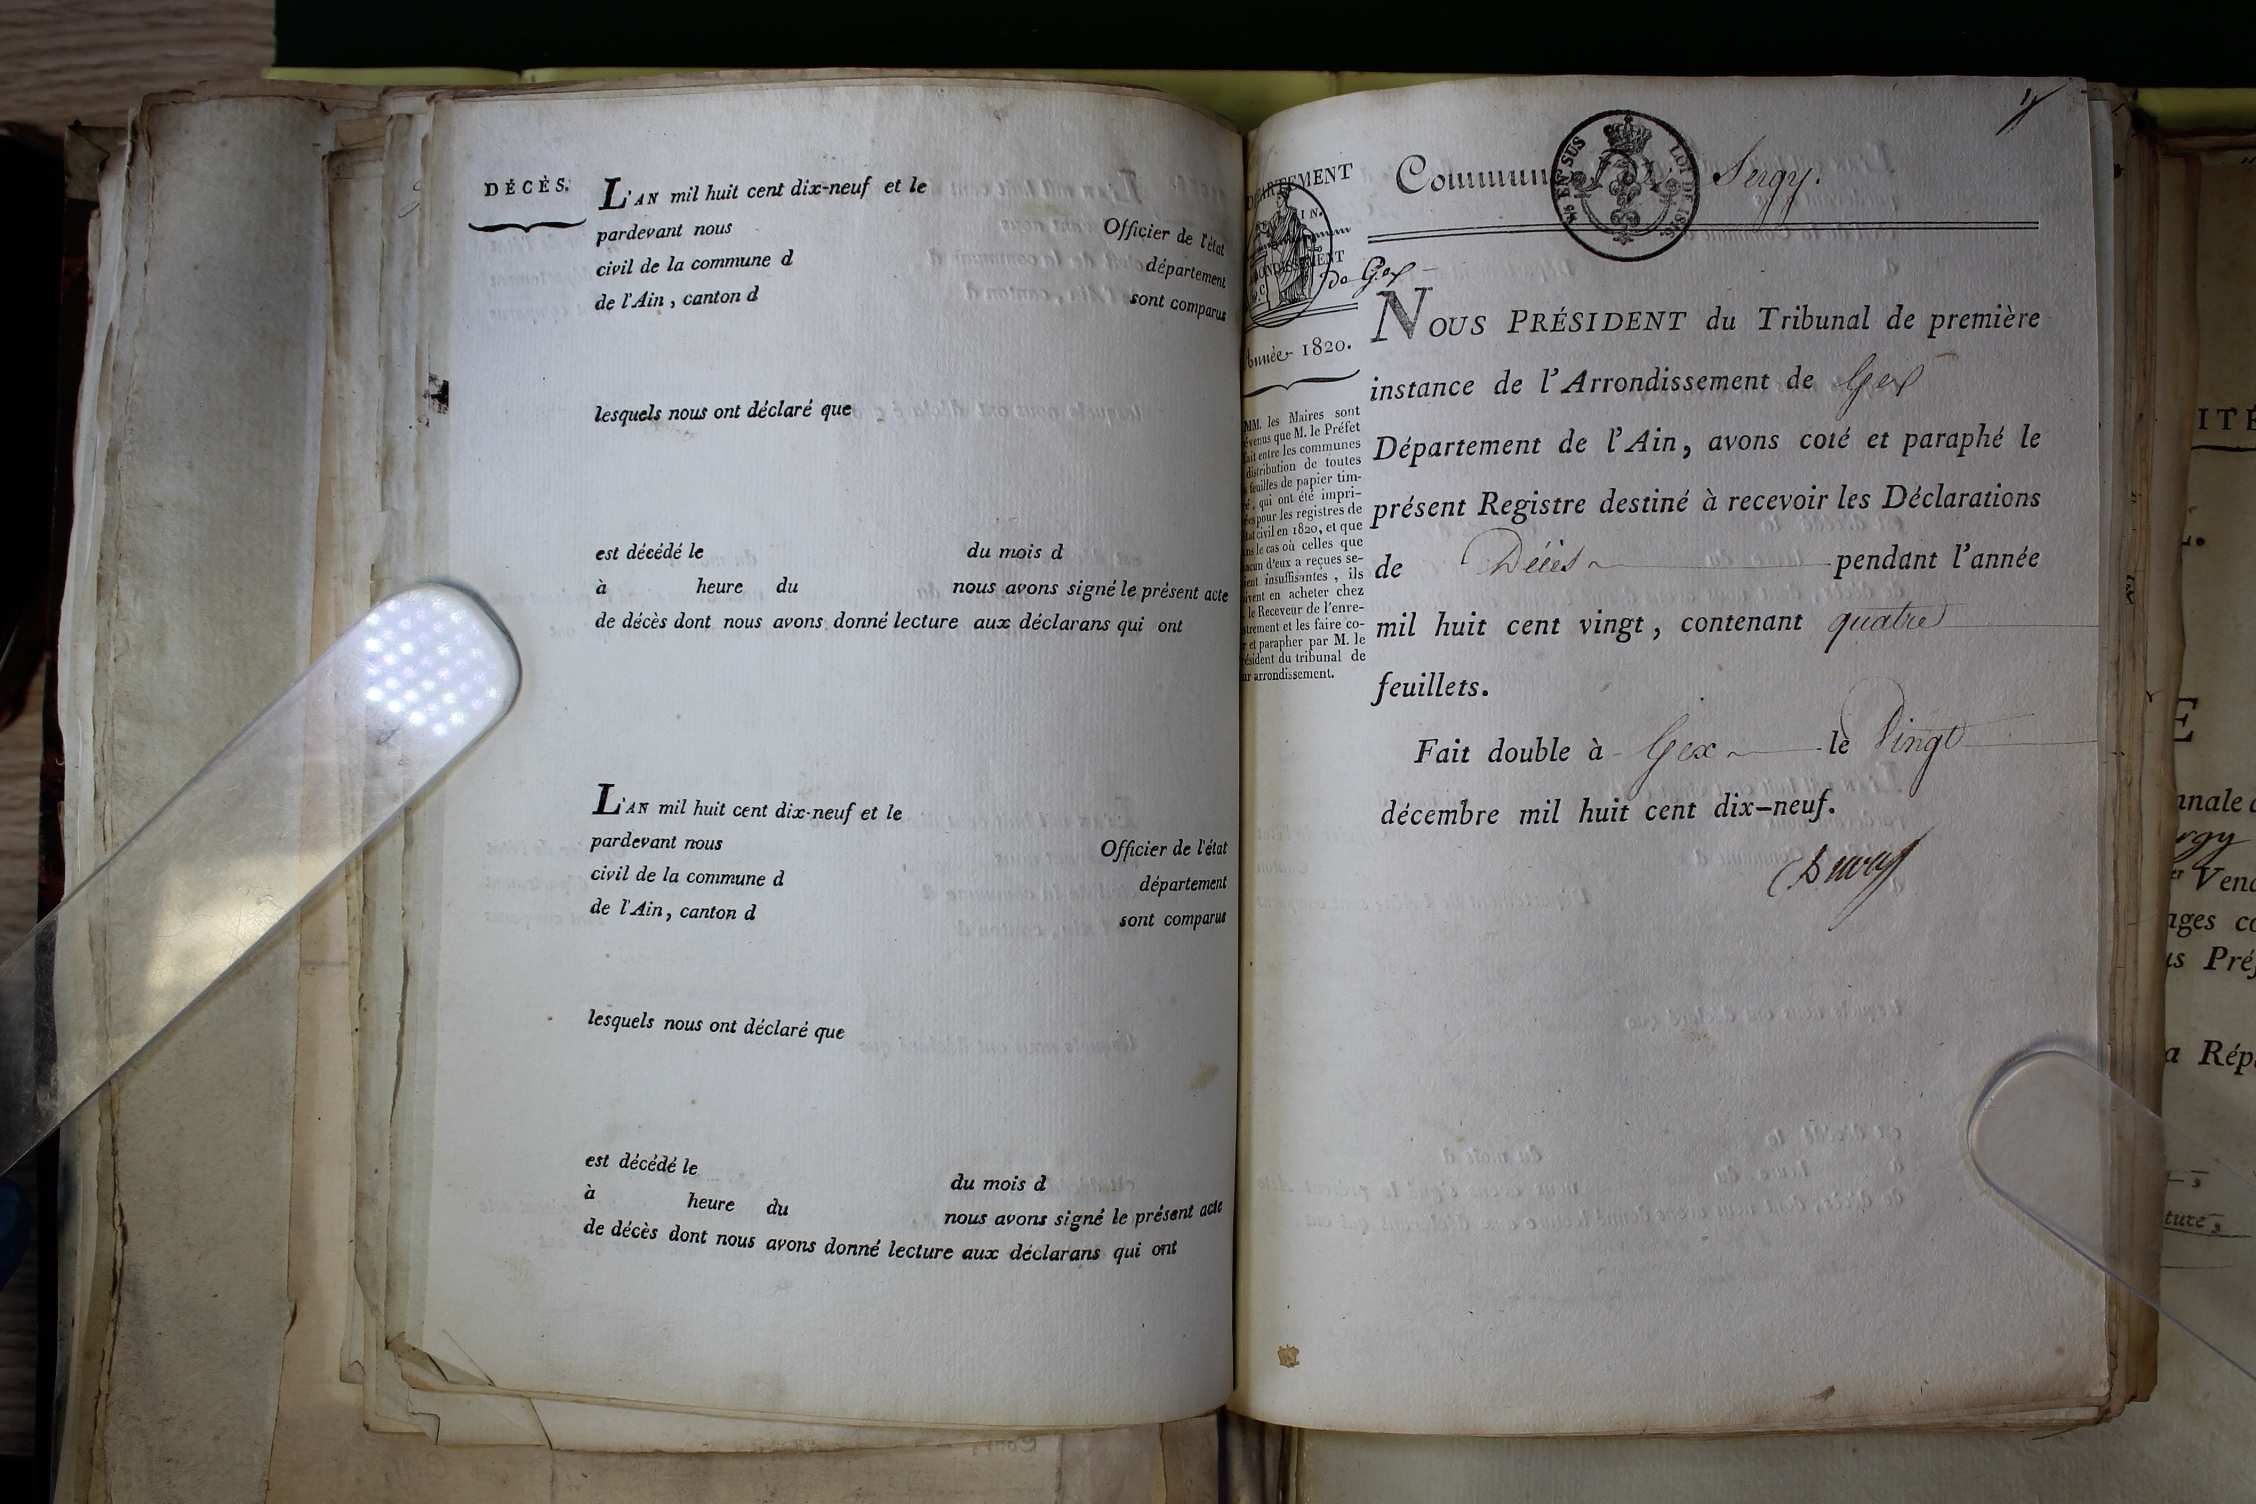 DÉCÈS.
L'AN mil huit cent dix-neuf et le
pardevant nous Officier de l'état
civil de la commune d département
de l'Ain, canton d sont comparus
lesquels nous ont déclaré que
est décédé le du mois d
à heure du nous avons signé le présent acte
de décès dont nous avons donné lecture aux déclarans qui ont
L'AN mil huit cent dix-neuf et le
pardevant nous Officier de l'état
civil de la commune d département
de l'Ain, canton d sont comparus
lesquels nous ont déclaré que
est décédé le du mois d
à heure du nous avons signé le présent acte
de décès dont nous avons donné lecture aux déclarans qui ont
DÉPARTEMENT
de Gex
Année 1820.
MM. les Maires sont
venus que M. le Préfet
fait entre les communes
distribution de toutes
feuilles de papier tim-
qui ont été impri-
pour les registres de
civil en 1820, et que
le cas où celles que
d'eux a reçues se-
insuffisantes, ils
en acheter chez
le Receveur de l'enre-
et les faire co-
et parapher par M. le
du tribunal de
arrondissement.
Commun Sergy.
EN SUS LOI DE 1816
NOUS PRÉSIDENT du Tribunal de première
instance de l'Arrondissement de Gex
Département de l'Ain, avons coté et paraphé le
présent Registre destiné à recevoir les Déclarations
de Décès pendant l'année
mil huit cent vingt, contenant quatre
feuillets.
Fait double à Gex le Vingt
décembre mil huit cent dix-neuf.
ITÉ
nnale
rgy
Vend
ages co
us Préf
a Rép
ture,